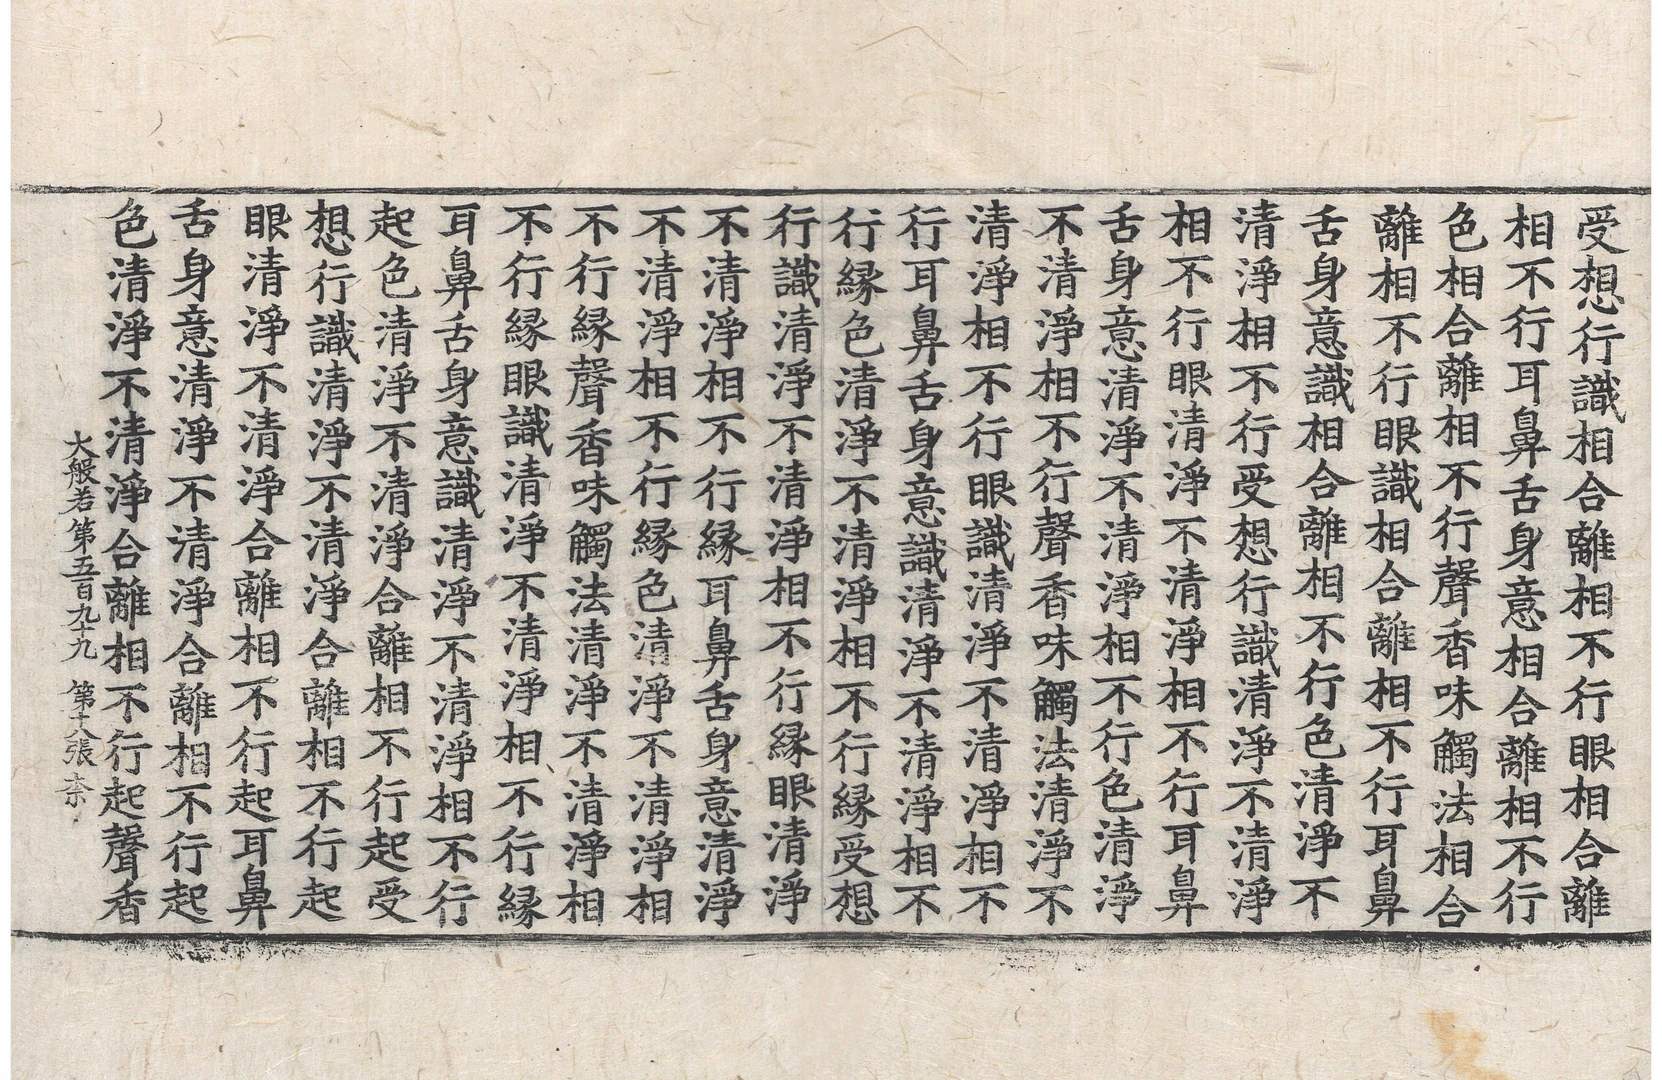 受想行識相合離相不行眼相合離
相不行耳鼻舌身意相合離相不行
色相合離相不行聲香味觸法相合
離相不行眼識相合離相不行耳鼻
舌身意識相合離相不行色清淨不
清淨相不行受想行識清淨不清淨
相不行眼清淨不清淨相不行耳鼻
舌身意清淨不清淨相不行色清淨
不清淨相不行聲香味觸法清淨不
清淨相不行眼識清淨不清淨相不
行耳鼻舌身意識清淨不清淨相不
行縁色清淨不清淨相不行縁受想
行識清淨不清淨相不行縁眼清淨
不清淨相不行縁耳鼻舌身意清淨
不清淨相不行縁色清淨不清淨相
不行縁聲香味觸法清淨不清淨相
不行縁眼識清淨不清淨相不行縁
耳鼻舌身意識清淨不清淨相不行
起色清淨不清淨合離相不行起受
想行識清淨不清淨合離相不行起
眼清淨不清淨合離相不行起耳鼻
舌身意清淨不清淨合離相不行起
色清淨不清淨合離相不行起聲香
大般若第五百九十九 第十八張 柰